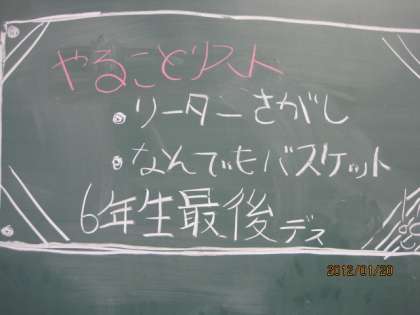 やることリスト
・リーターさがし
・なんでもバスケット
6年生最後デス
2012/01/20